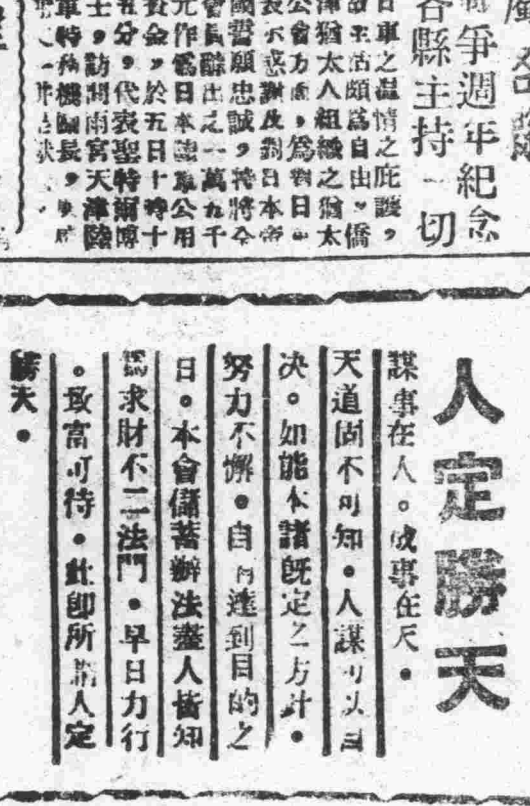 爭週年紀念
各縣主持一切
日軍之溫情之庇護，
故生活頗爲自由。僑
津猶太人組織之猶太
公會方面，爲對日
表示感謝及對日本帝
國誓願忠誠，特將全
會員醵出之一萬五千
元作爲日本
資金，於五日十時十
五分。代表聖特爾博
士。訪問雨宮天津陸
軍特務機關長。
人定勝天
謀事在人。成事在天。
天道固不可知。人謀可以自
决。如能本諸既定之方針。
努力不懈。自可達到目的之
日。本會儲蓄辦法蓋人皆知
爲求財不二法門。早日力行
。致富可待。此卽所謂人定
勝天。